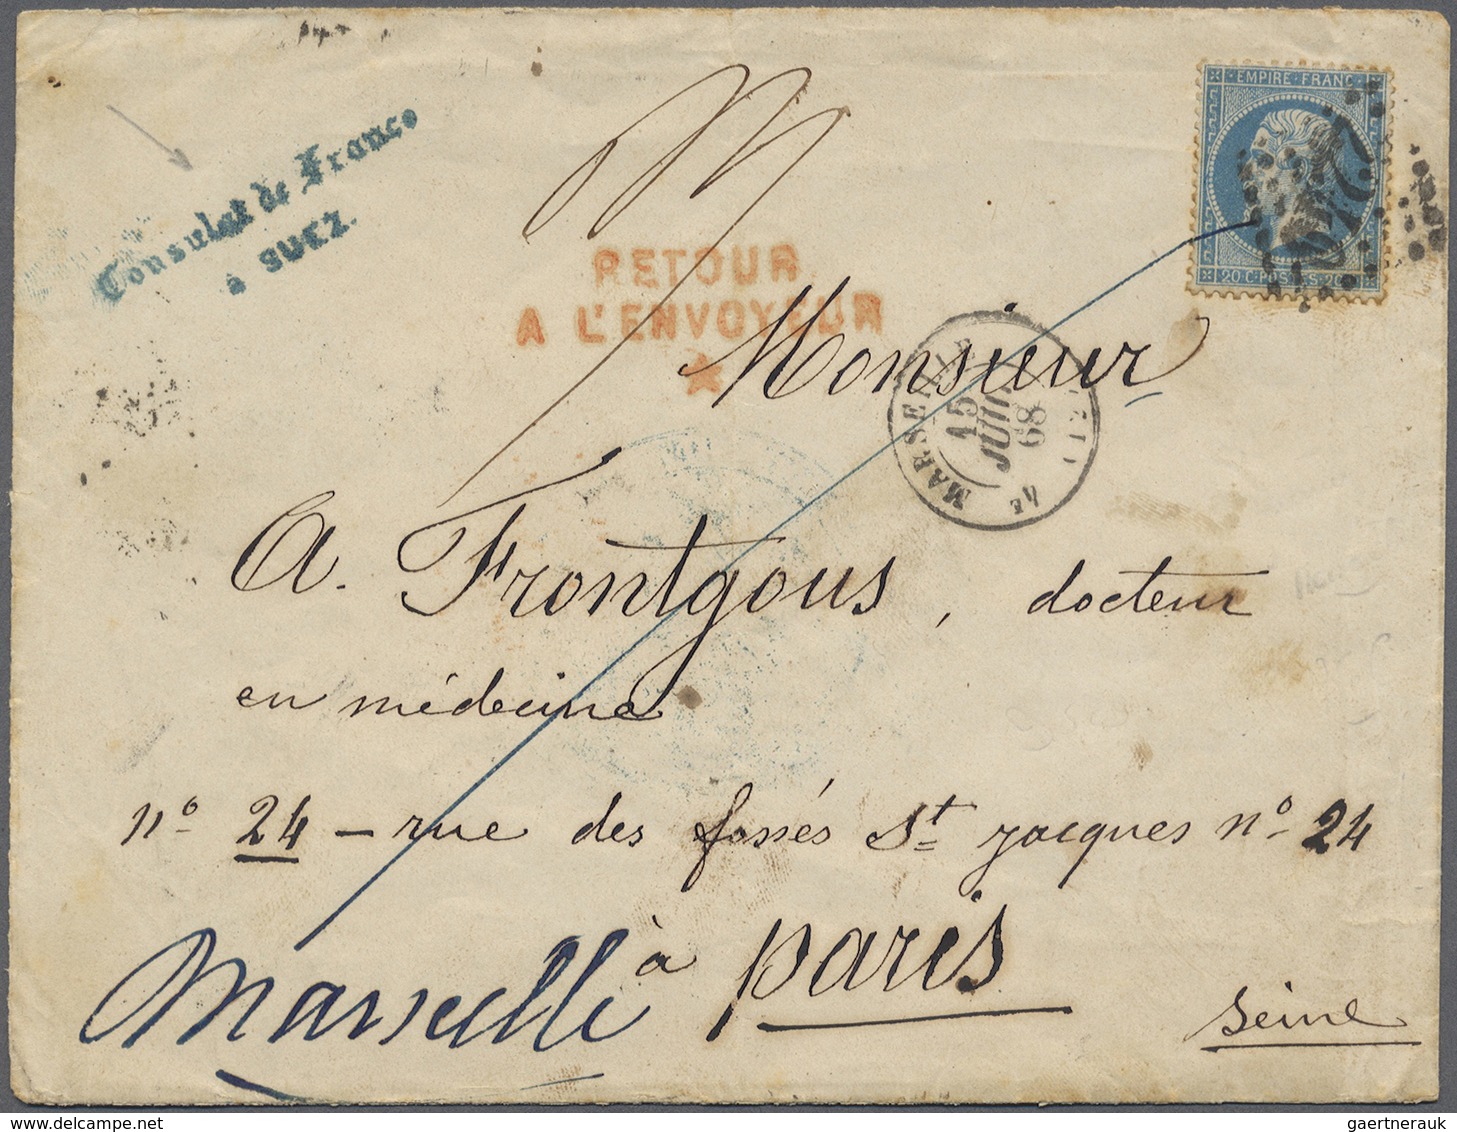 Consulat de France
à SUEZ.
EMPIRE FRANC
20 C. POSTES 20
RETOUR
A L'ENVOYEUR
Monsieur
MARSEILLE
15
JUIL
68
4E
A. Frontgous, docteur
en médecine
n° 24 - rue des fossés St jacques n° 24
à paris
Marseille
Seine
gaertnerauk